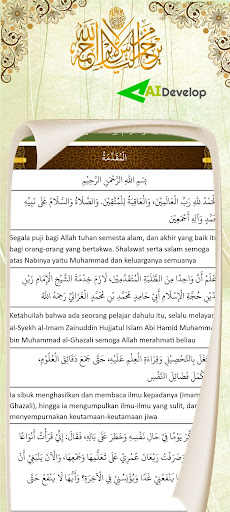 بسم الله الرحمن الرحيم
AIDevelop
الْمُقَدِّمَةُ
بِسْمِ اللهِ الرَّحْمٰنِ الرَّحِيْمِ
لْحَمْدُ لِلّٰهِ رَبِّ الْعَالَمِيْنَ، وَالْعَاقِبَةُ لِلْمُتَّقِيْنَ. وَالصَّلَاةُ وَالسَّلَامُ عَلَى نَبِيِّهِ
مُحَمَّدٍ وَآلِهِ أَجْمَعِيْنَ
Segala puji bagi Allah tuhan semesta alam, dan akhir yang baik itu
bagi orang-orang yang bertakwa. Shalawat serta salam semoga
atas Nabinya yaitu Muhammad dan keluarganya semuanya
عْلَمْ أَنَّ وَاحِدًا مِنَ الطَّلَبَةِ الْمُتَقَدِّمِيْنَ، لَازَمَ خِدْمَةَ الشَّيْخِ الْإِمَامِ زَيْنِ
يْنِ حُجَّةِ الْإِسْلَامِ أَبِيْ حَامِدٍ مُحَمَّدِ بْنِ مُحَمَّدٍ الْغَزَالِيِّ رَحِمَهُ اللهُ
Ketahuilah bahwa ada seorang pelajar dahulu itu, selalu melayani
al-Syekh al-Imam Zainuddin Hujjatul Islam Abi Hamid Muhammad
bin Muhammad al-Ghazali semoga Allah merahmati beliau
تَغَلَ بِالتَّحْصِيْلِ وَقِرَاءَةِ الْعِلْمِ عَلَيْهِ، حَتَّى جَمَعَ دَقَائِقَ الْعُلُوْمِ،
تَكْمَلَ فَضَائِلَ النَّفْسِ
Ia sibuk menghasilkan dan membaca ilmu kepadanya (Imam
Ghazali), hingga ia mengumpulkan ilmu-ilmu yang sulit, dan
menyempurnakan keutamaan-keutamaan jiwa
كَّرَ يَوْمًا فِيْ حَالِ نَفْسِهِ وَخَطَرَ عَلَى بَالِهِ، فَقَالَ: إِنِّيْ قَرَأْتُ أَنْوَاعًا
صَرَفْتُ رَيْعَانَ عُمْرِيْ عَلَى تَعَلُّمِهَا وَجَمْعِهَا، وَالْآنَ يَنْبَغِيْ أَنْ
يَنْفَعُنِيْ غَدًا وَيُؤْنِسُنِيْ فِي الْآخِرَةِ؟ وَأَيُّهَا لَا يَنْفَعُ حَتَّى